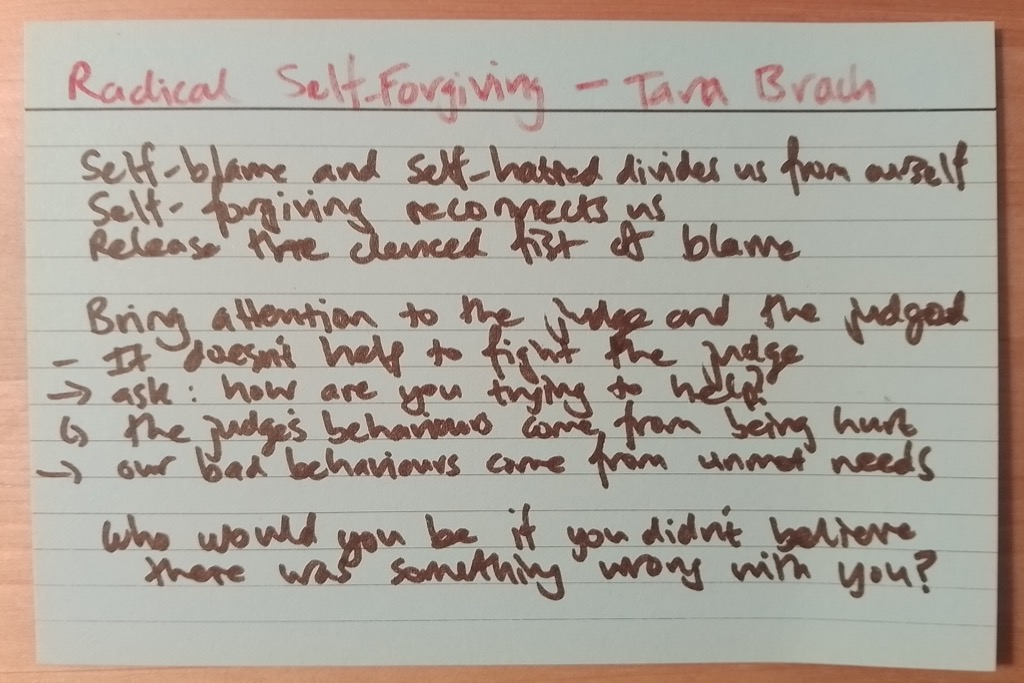 Radical Self-Forgiving - Tara Brach
Self-blame and self-hatred divides us from ourself
Self-forgiving reconnects us
Release the clenced fist of blame
Bring attention to the judge and the judged
- It doesn't help to fight the judge
→ ask: how are you trying to help?
↳ the judge's behaviours come from being hurt
→ our bad behaviours come from unmet needs
Who would you be if you didn't believe
there was something wrong with you?